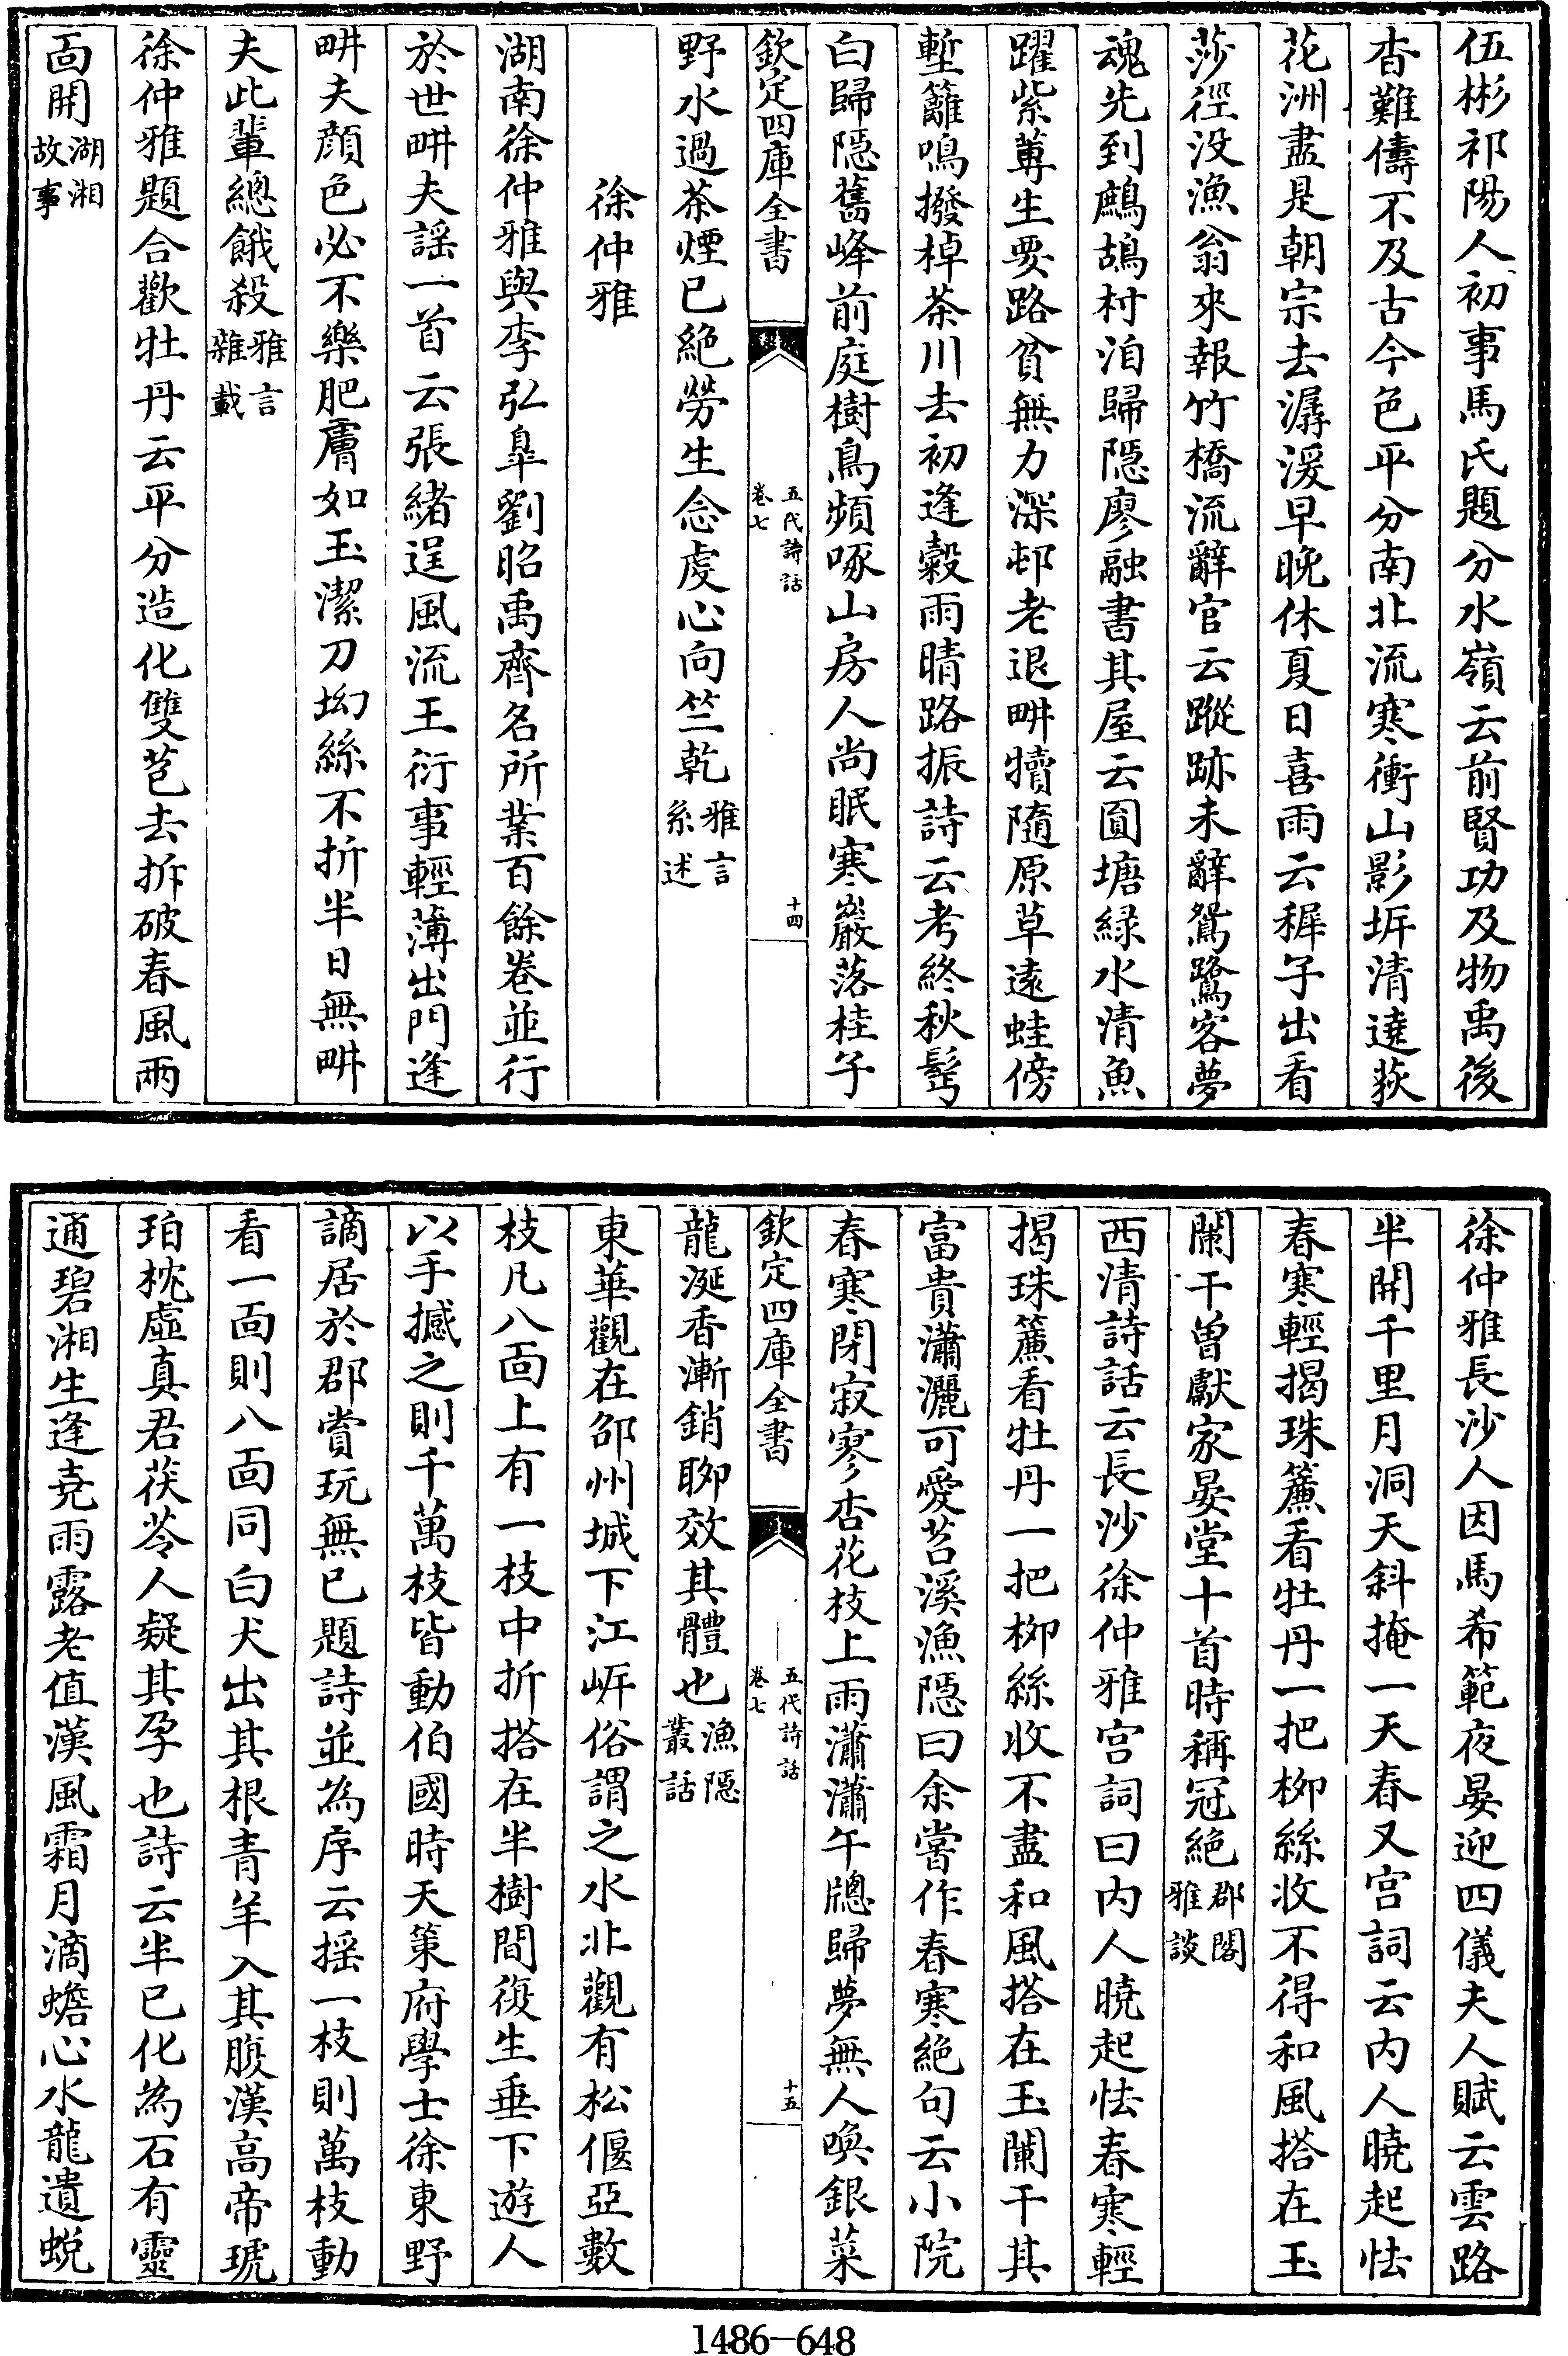 伍彬祁陽人初事馬氏題分水嶺云前賢功及物禹後
杳難儔不及古今色平分南北流寒衝山影坼清遶荻
花洲盡是朝宗去潺湲早晚休夏日喜雨云穉子出看
莎徑没漁翁來報竹橋流辭官云蹤跡未辭鴛鷺客夢
魂先到鷓鴣村洎歸隠廖融書其屋云圓塘緑水清魚
躍紫蓴生要路貧無力深邨老退畊犢隨原草遠蛙傍
塹籬鳴撥棹茶川去初逢穀雨晴路振詩云考終秋髩
白歸隠舊峰前庭樹鳥頻啄山房人尚眠寒巖落桂子
欽定四庫全書
五代詩話
卷七
十四
野水過茶煙已絶勞生念虔心向竺乾雅言
系述
徐仲雅
湖南徐仲雅與李弘臯劉昭禹齊名所業百餘卷並行
於世畊夫謡一首云張緒逞風流王衍事輕薄出門逢
畊夫顔色必不樂肥膚如玉潔刀坳絲不折半日無畊
夫此輩總餓殺雅言
雜載
徐仲雅題合歡牡丹云平分造化雙苞去拆破春風兩
面開湖湘
故事
徐仲雅長沙人因馬希範夜宴迎四儀夫人賦云雲路
半開千里月洞天斜掩一天春又宫詞云内人曉起怯
春寒輕揭珠簾看牡丹一把柳絲收不得和風搭在玉
闌干曾獻家宴堂十首時稱冠絶郡閣
雅談
西清詩話云長沙徐仲雅宫詞曰内人曉起怯春寒輕
揭珠簾看牡丹一把柳絲收不盡和風搭在玉闌干其
富貴瀟灑可愛苕溪漁隠曰余嘗作春寒絶句云小院
春寒閉寂寥杏花枝上雨瀟瀟午牕歸夢無人喚銀葉
欽定四庫全書
五代詩話
卷七
十五
龍涎香漸銷聊效其體也漁隠
叢話
東華觀在邵州城下江岸俗謂之水北觀有松偃亞數
枝凡八面上有一枝中折搭在半樹間復生垂下遊人
以手撼之則千萬枝皆動伯國時天策府學士徐東野
謫居於郡賞玩無已題詩並為序云揺一枝則萬枝動
看一面則八面同白犬出其根青羊入其腹漢高帝琥
珀枕虛真君茯苓人疑其孕也詩云半已化為石有靈
通碧湘生逢堯雨露老值漢風霜月滴蟾心水龍遺蜕
1486-648